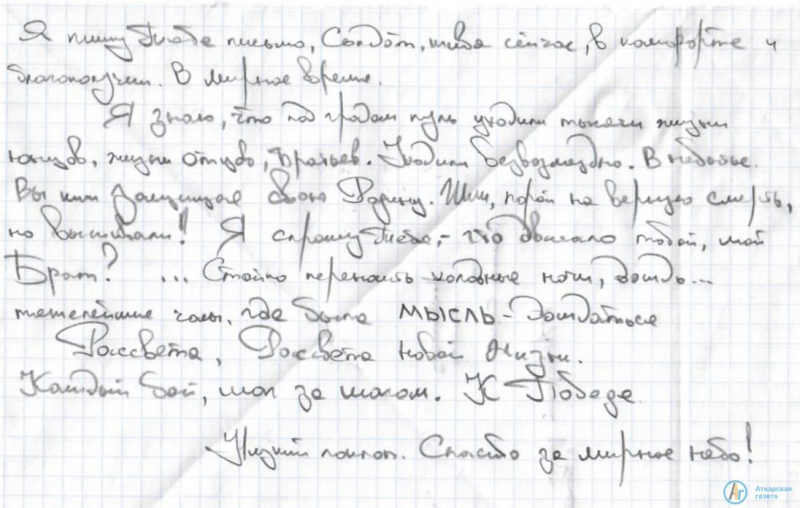 Я пишу тебе письмо, Солдат, живя сейчас, в комфорте и
благополучии. В мирное время.
Я знаю, что под градом пуль уходили тысячи жизни
юнцов, жизни отцов, Братьев. Уходили безвозмездно. В небытие.
Вы шли защищая свою Родину. Шли, порой на верную смерть,
но выстояли! Я спрошу тебя, - что двигало тобой, мой
Брат? ... Стойко переносить холодные ночи, дождь...
тяжелейшие часы, где была МЫСЛЬ - дождаться
Рассвета, Рассвета новой Жизни.
Каждый бой, шаг за шагом. К Победе.
Низкий поклон. Спасибо за мирное небо!
Аткарская
газета